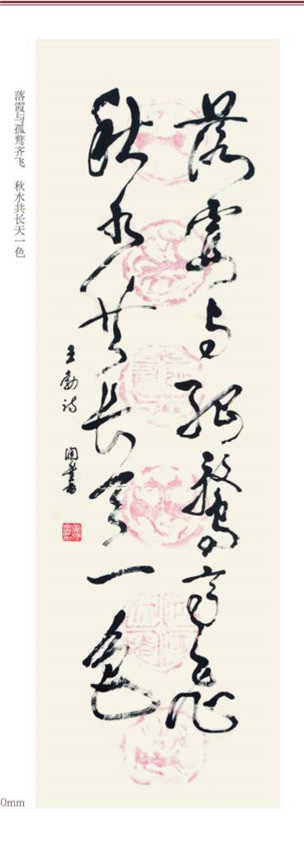 落霞与孤鹜齐飞
秋水共长天一色
王勃诗
落霞与孤鹜齐飞 秋水共长天一色
0mm